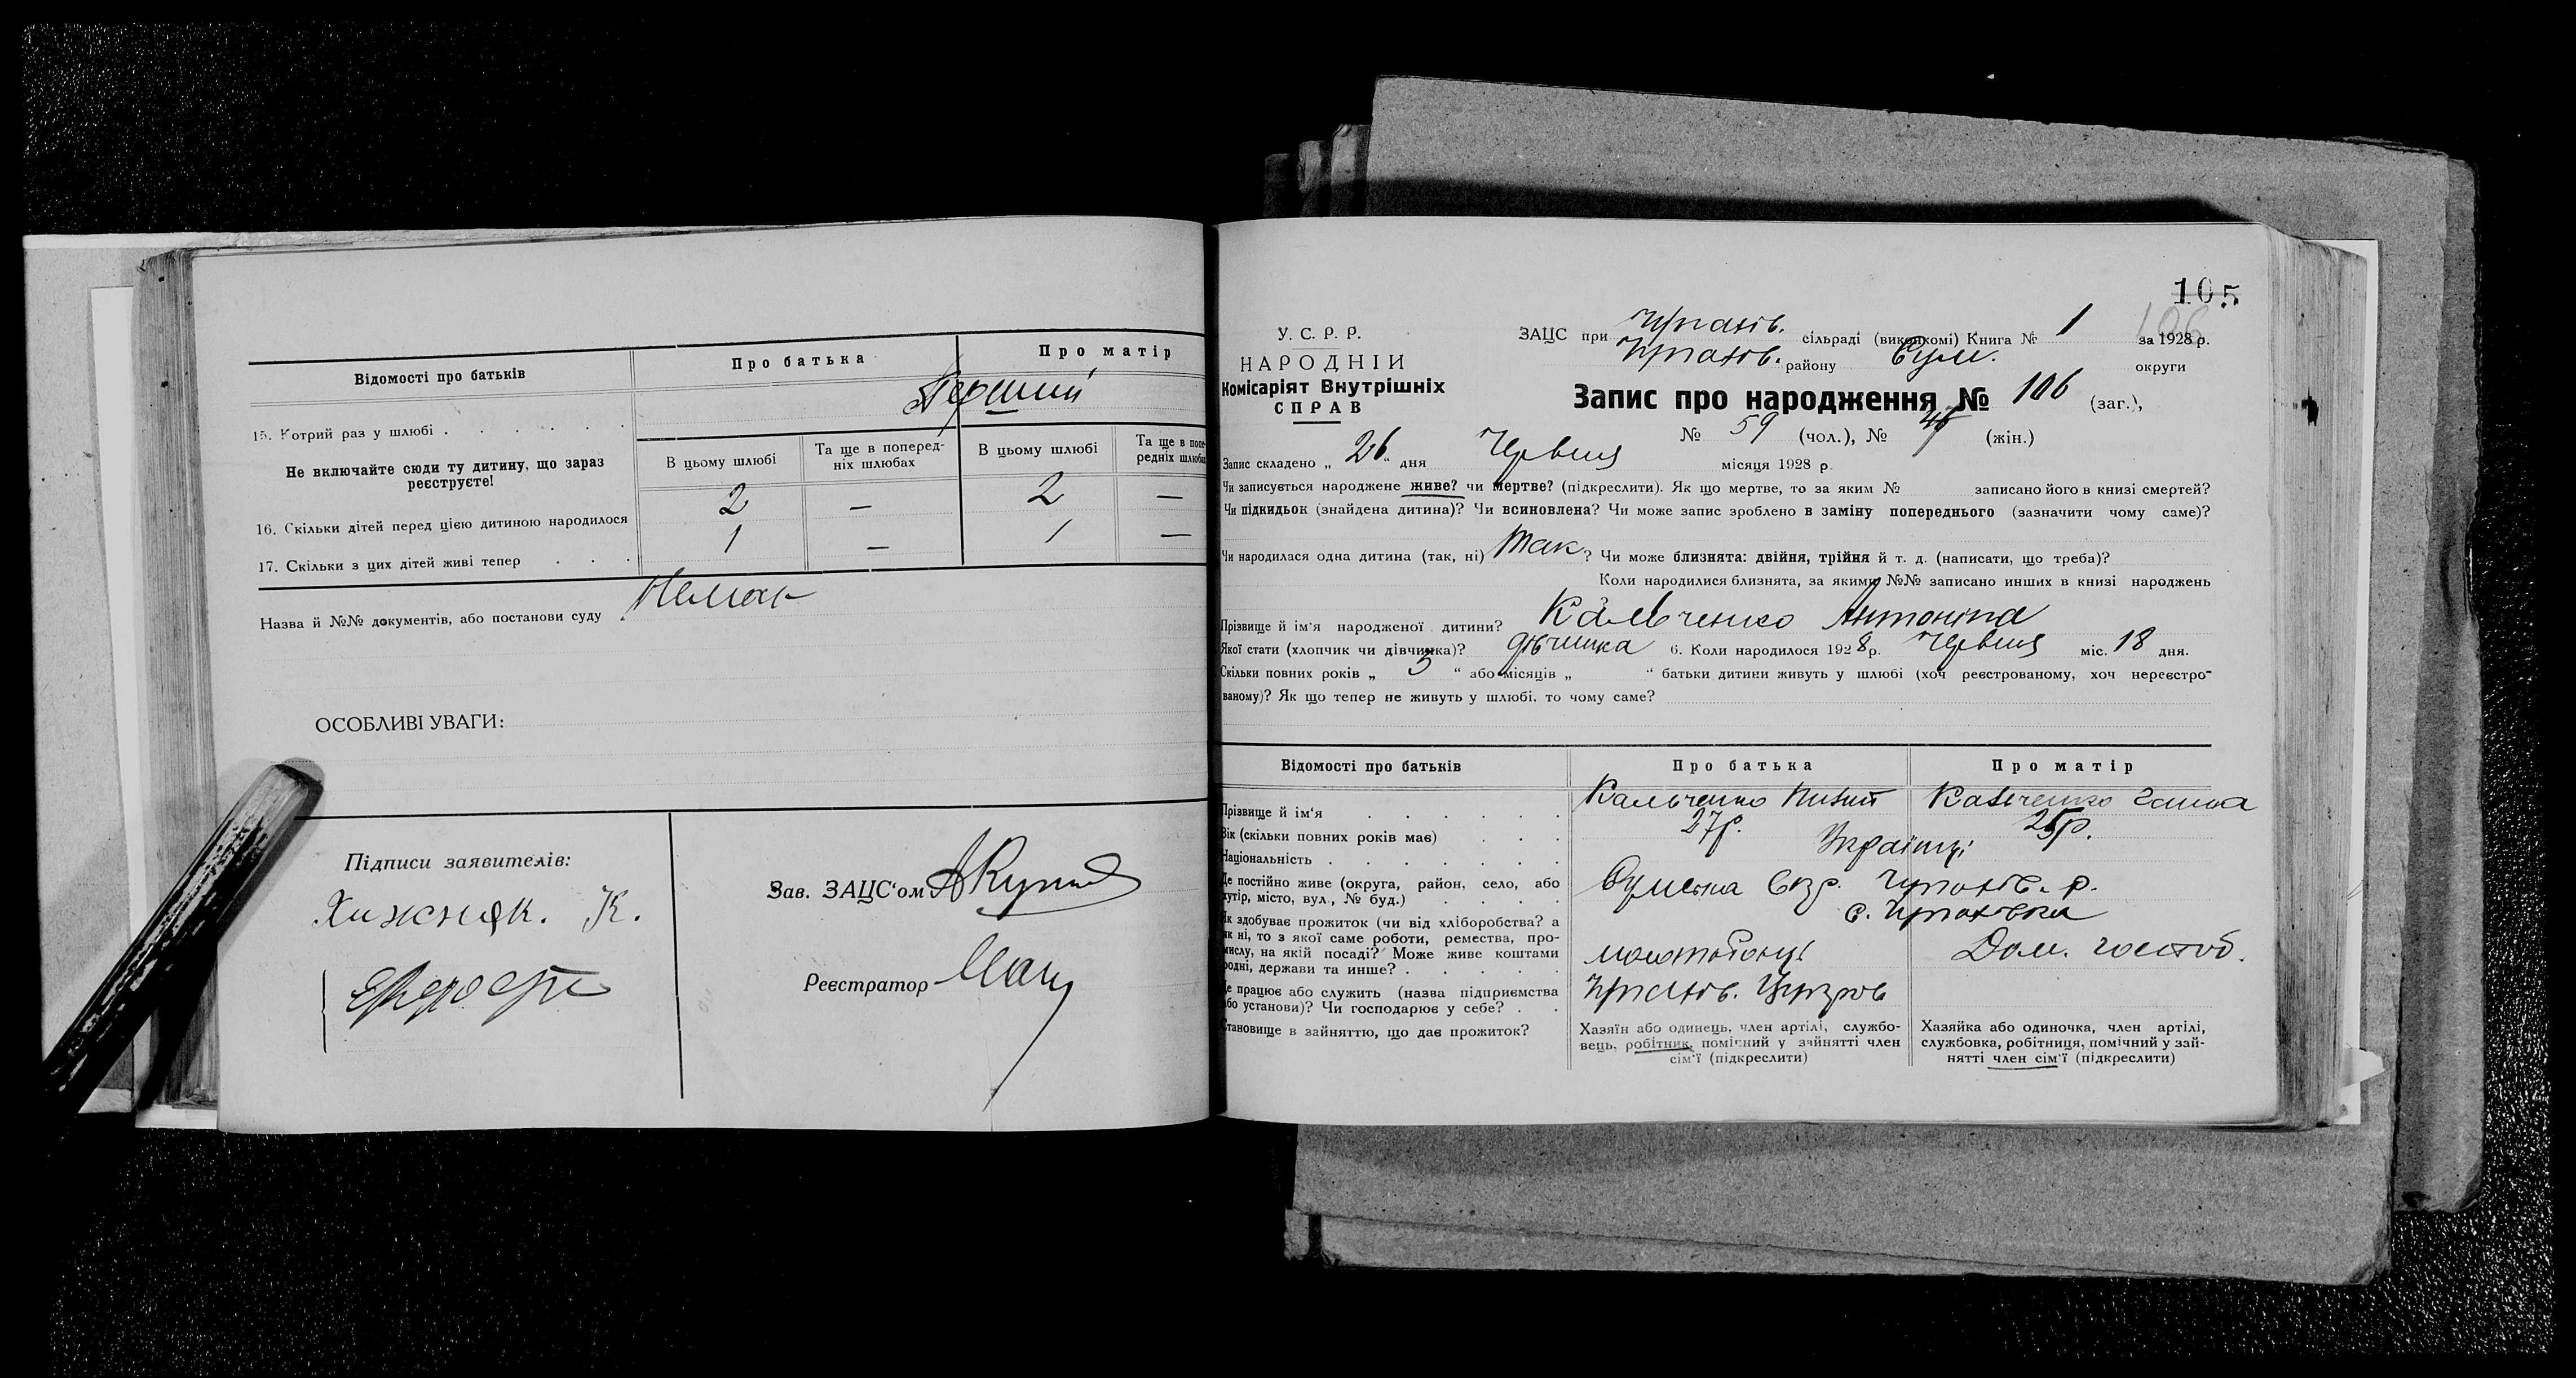 Відомості про батьків
Про батька
Про матір
15. Котрий раз у шлюбі
Перший
Не включайте сюди ту дитину, що зараз реєструєте!
В цьому шлюбі
Та ще в поперед-
ніх шлюбах
В цьому шлюбі
Та ще в попе-
редніх шлюбах
16. Скільки дітей перед цією дитиною народилося 2 — 2 —
17. Скільки з цих дітей живі тепер 1 — 1 —
Назва й №№ документів, або постанови суду Немає
ОСОБЛИВІ УВАГИ:
Підписи заявителів:
Хижняк. К.
Зав. ЗАЦС'ом
Реєстратор
105
106
У. С. Р. Р.
НАРОДНІЙ
Комісаріят Внутрішніх
СПРАВ
ЗАЦС при сільраді (виконкомі) Книга № 1 за 1928 р.
району Сум. округи
Запис про народження № 106 (заг.),
№ 59 (чол.), № (жін.)
Запис складено „ 26 " дня Червня місяця 1928 р.
Чи записується народжене живе? чи мертве? (підкреслити). Як що мертве, то за яким № записано його в книзі смертей?
Чи підкидьок (знайдена дитина)? Чи всиновлена? Чи може запис зроблено в заміну попереднього (зазначити чому саме)?
Чи народилася одна дитина (так, ні) Так ? Чи може близнята: двійня, трійня й т. д. (написати, що треба)?
Коли народилися близнята, за якими №№ записано инших в книзі народжень
Прізвище й ім'я народженої дитини? Кальченко Антоніна
Якої стати (хлопчик чи дівчинка)? дівчинка 6. Коли народилося 1928 р. Червня міс. 18 дня.
Скільки повних років „ 5 " або місяців „ " батьки дитини живуть у шлюбі (хоч реєстрованому, хоч нереєстро-
ваному)? Як що тепер не живуть у шлюбі, то чому саме?
Відомості про батьків
Про батька
Про матір
Прізвище й ім'я Кальченко Кальченко Ганна
Вік (скільки повних років має) 27р. 25р.
Національність Українці
Де постійно живе (округа, район, село, або
хутір, місто, вул., № буд.) Сумська
Як здобуває прожиток (чи від хліборобства? а
як ні, то з якої саме роботи, ремества, про-
мислу, на якій посаді? Може живе коштами
родні, держави та инше?
Дом. господ.
Де працює або служить (назва підприємства
або установи)? Чи господарює у себе?
Становище в зайняттю, що дає прожиток?
Хазяїн або одинець, член артілі, службо-
вець, робітник, помічний у зайнятті член
сім'ї (підкреслити)
Хазяйка або одиночка, член артілі,
службовка, робітниця, помічний у зай-
нятті член сім'ї (підкреслити)